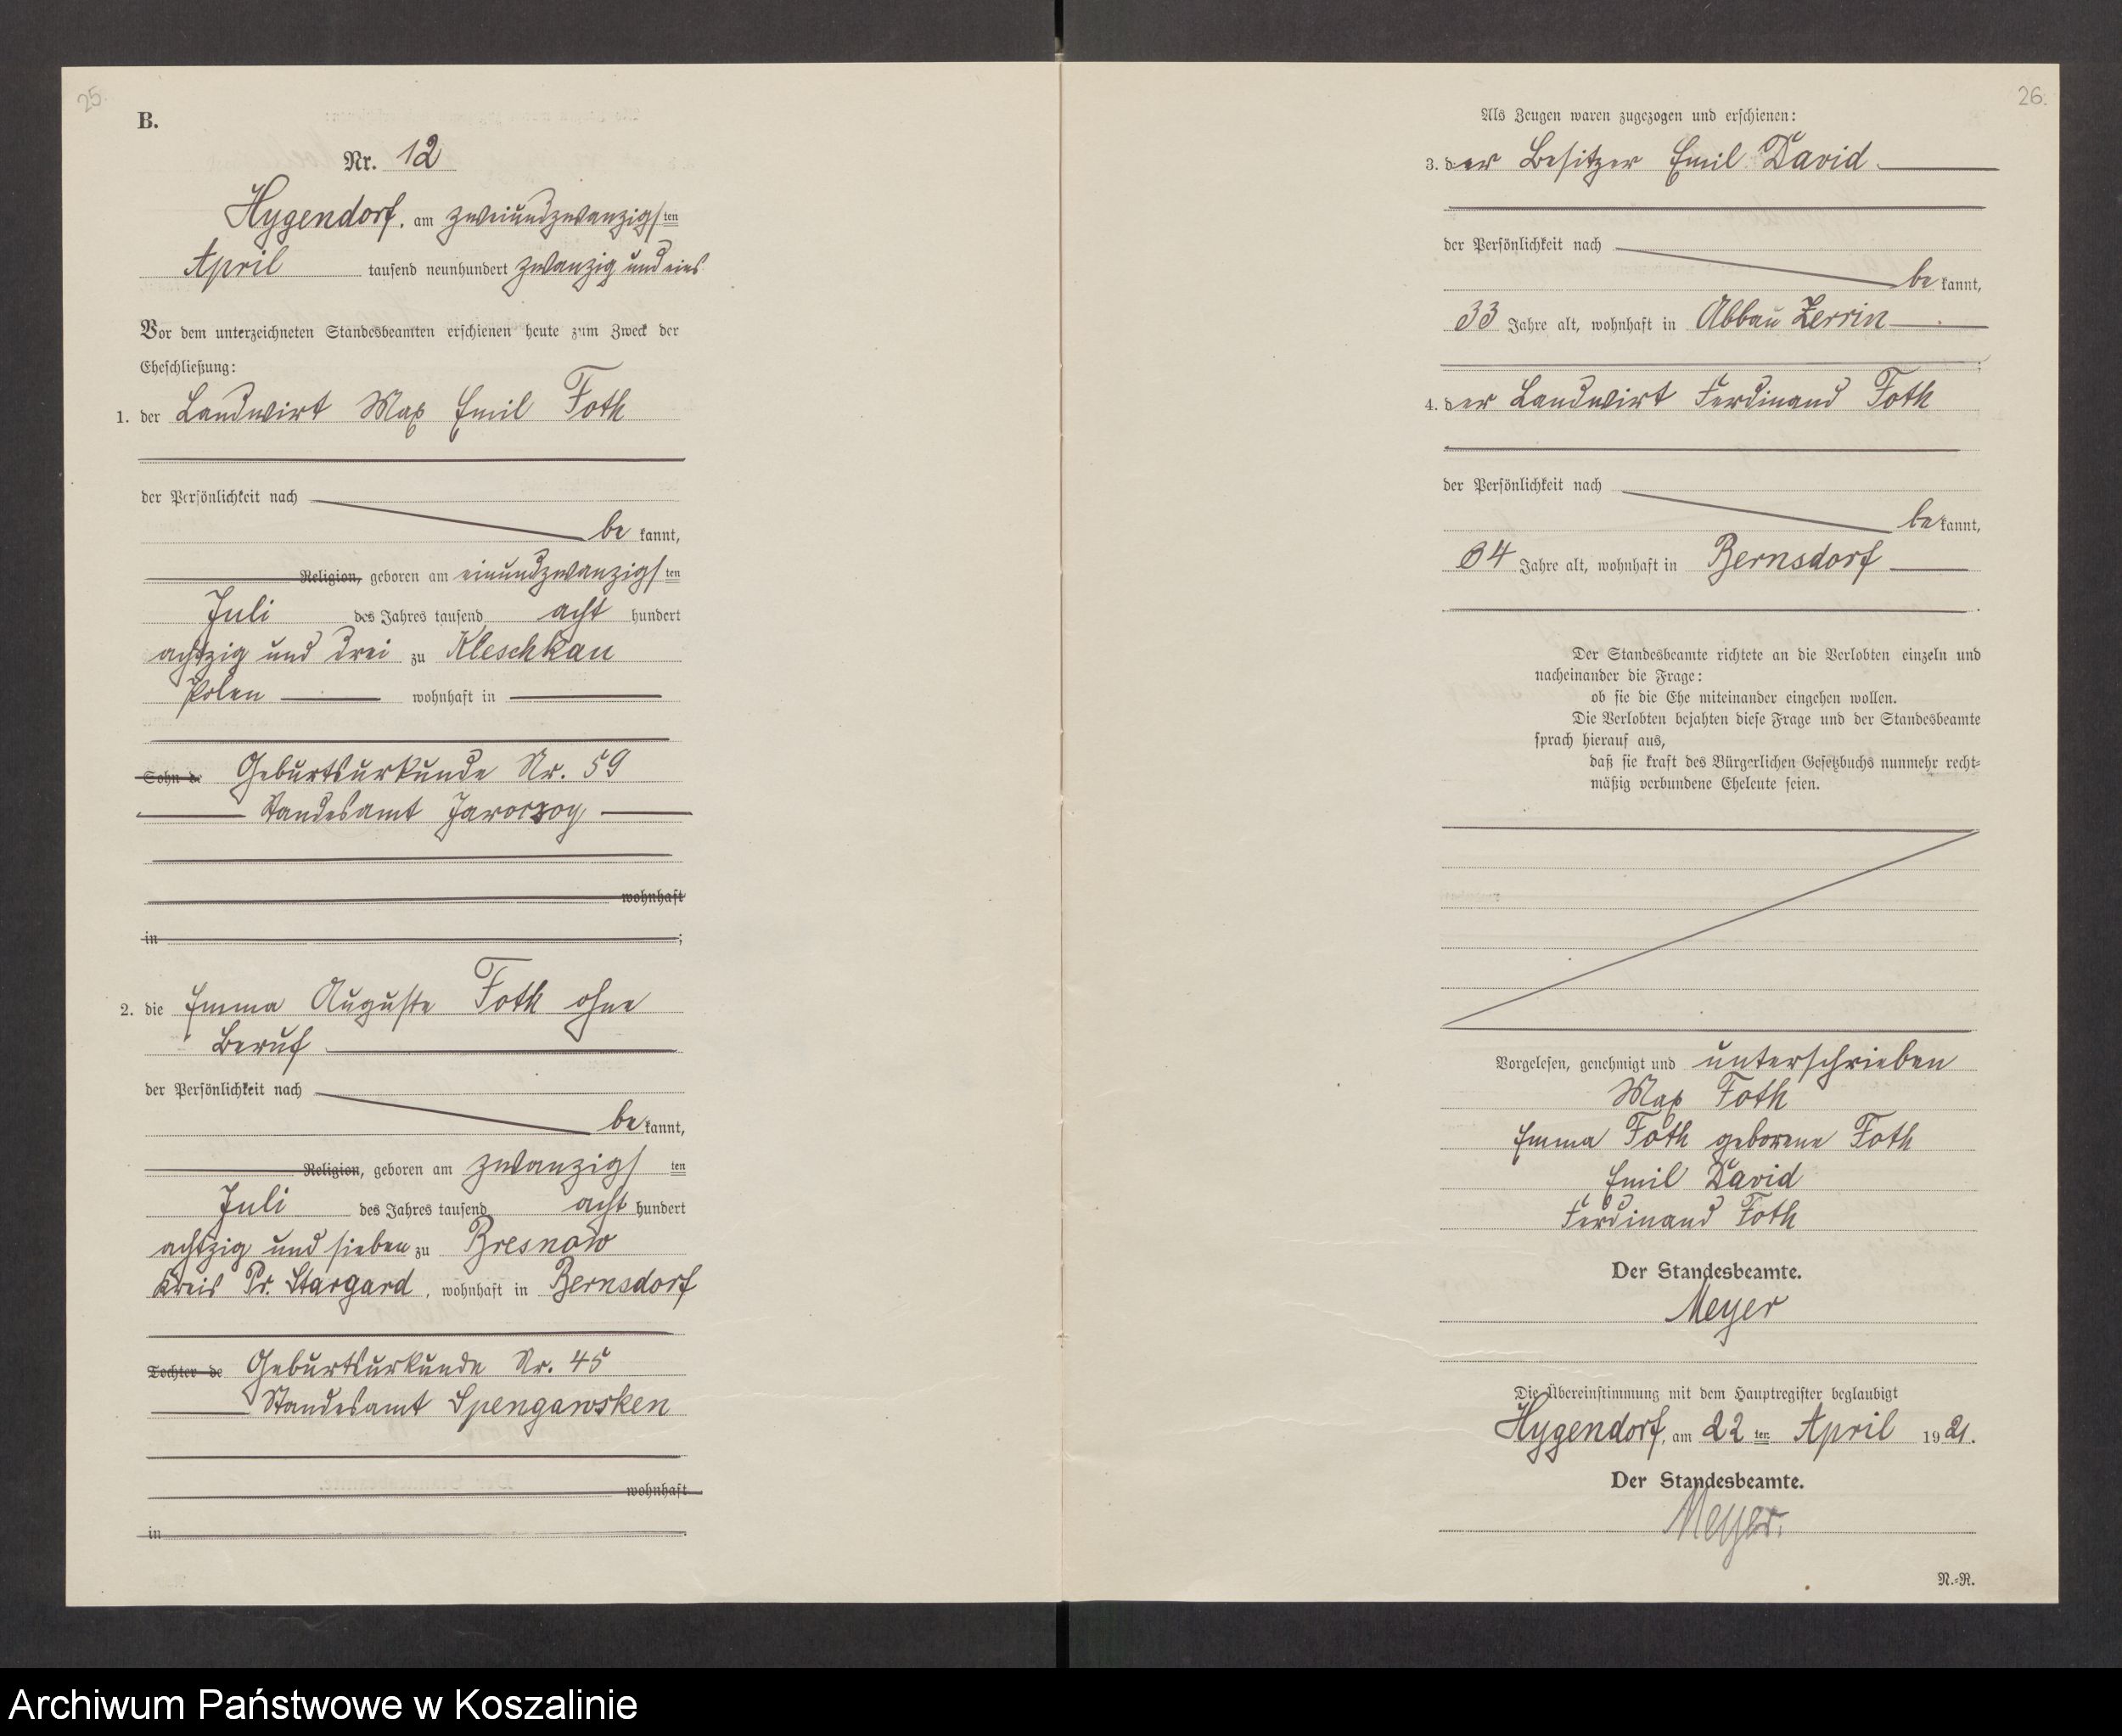 25.
B.
Nr. 12
Hygendorf, am zweiundzwanzigsten
April tausend neunhundert zwanzig und eins
Vor dem unterzeichneten Standesbeamten erschienen heute zum Zweck der
Eheschließung:
1. der Landwirt Max Emil Foth
der Persönlichkeit nach
be kannt,
Religion, geboren am einundzwanzigsten
Juli des Jahres tausend acht hundert
achtzig und drei zu Kleschkau
Polen wohnhaft in
Sohn de Geburtsurkunde Nr. 59
Standesamt
wohnhaft
in ;
2. die Emma Auguste Foth ohne
Beruf
der Persönlichkeit nach
be kannt,
Religion, geboren am zwanzigsten
Juli des Jahres tausend acht hundert
achtzig und sieben zu Bresnow
Kreis Pr. Stargard, wohnhaft in Bernsdorf
Tochter de Geburtsurkunde Nr. 45
Standesamt Spengawsken
wohnhaft
in .
26.
Als Zeugen waren zugezogen und erschienen:
3. der Besitzer Emil David
der Persönlichkeit nach
be kannt,
33 Jahre alt, wohnhaft in Abbau Zerrin
;
4. der Landwirt Ferdinand Foth
der Persönlichkeit nach
be kannt,
34 Jahre alt, wohnhaft in Bernsdorf
.
Der Standesbeamte richtete an die Verlobten einzeln und
nacheinander die Frage:
ob sie die Ehe miteinander eingehen wollen.
Die Verlobten bejahten diese Frage und der Standesbeamte
sprach hierauf aus,
daß sie kraft des Bürgerlichen Gesetzbuchs nunmehr recht-
mäßig verbundene Eheleute seien.
Vorgelesen, genehmigt und unterschrieben
Max Foth
Emma Foth geborene Foth
Emil David
Ferdinand Foth
Der Standesbeamte.
Meyer
Die Übereinstimmung mit dem Hauptregister beglaubigt
Hygendorf, am 22 ten April 1921.
Der Standesbeamte.
Meyer.
N.-R.
Archiwum Państwowe w Koszalinie